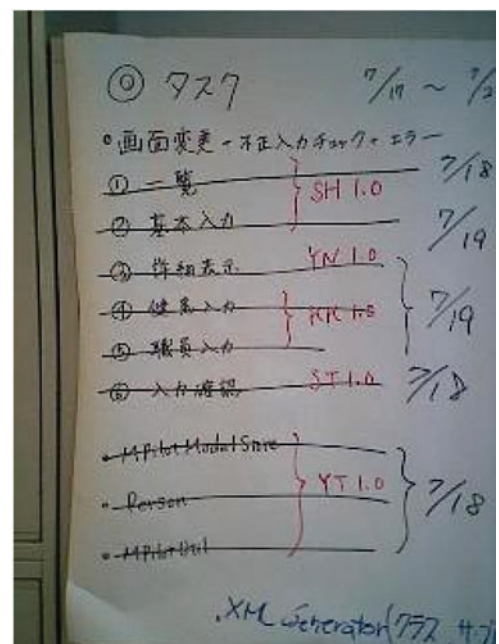 ◎ タスク 7/17 ~
・画面変更・不正入力チェック・エラー
① 一覧 7/18
SH 1.0
② 基本入力 7/19
③ 詳細表示 YN 1.0
④ 入力 KK 1.0 7/19
⑤ 職員入力
⑥ 入力確認 ST 1.0 7/18
・MPilotModel
・Person YT 1.0 7/18
・MPilotUtil
・XML Generator(クラス